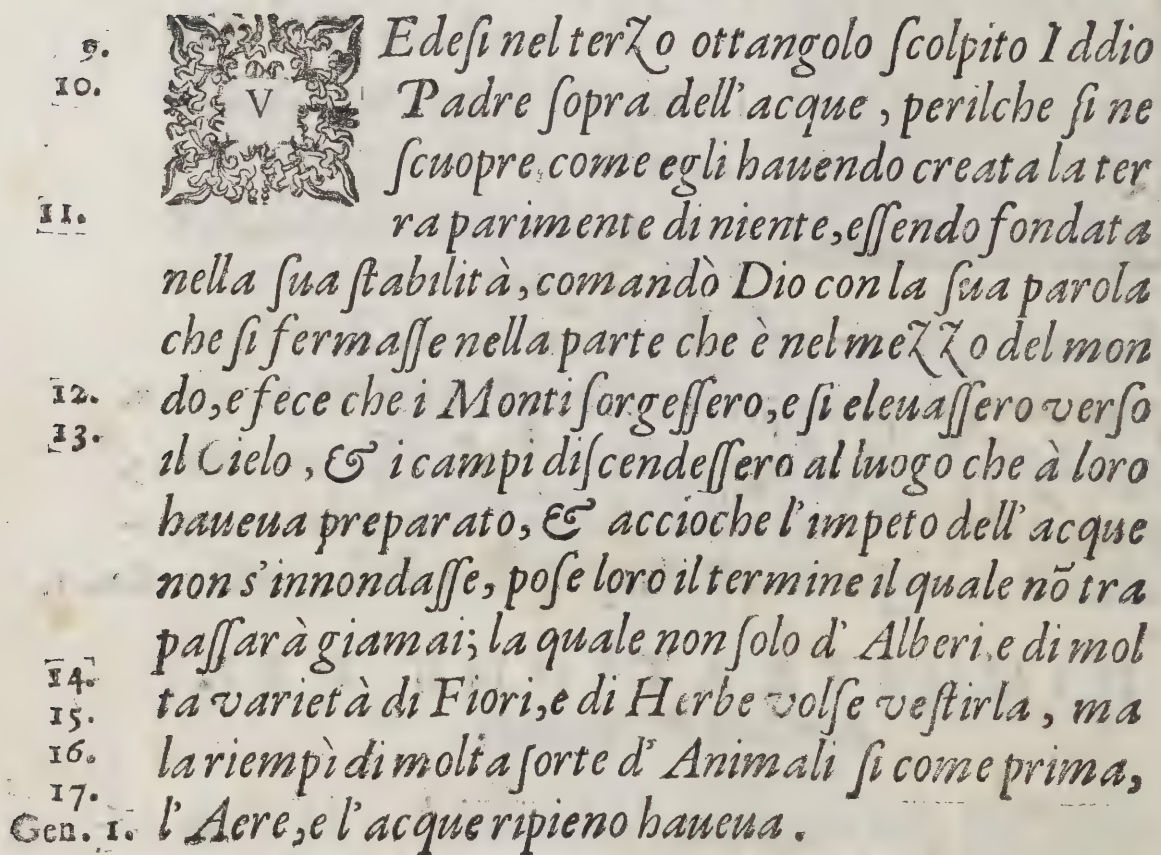 9. VEdeſi nel terzo ottangolo ſcolpito Iddio
10. Padre ſopra dell'acque, perilche ſi ne
ſcuopre, come egli hauendo creata la ter
11. ra parimente di niente, eſſendo fondata
nella ſua ſtabilità, comandò Dio con la ſua parola
che ſi fermaſſe nella parte che è nel mezzo del mon
12. do, e fece che i Monti ſorgeſſero, e ſi eleuaſſero verſo
13. il Cielo, & i campi diſcendeſſero al luogo che à loro
haueua preparato, & accioche l'impeto dell'acque
non s'innondaſſe, poſe loro il termine il quale nõ tra
paſſarà giamai; la quale non ſolo d'Alberi, e di mol
14. 15. ta varietà di Fiori, e di Herbe volſe veſtirla, ma
16. la riempì di molta ſorte d'Animali ſi come prima,
17. Gen. 1. l'Aere, e l'acque ripieno haueua.